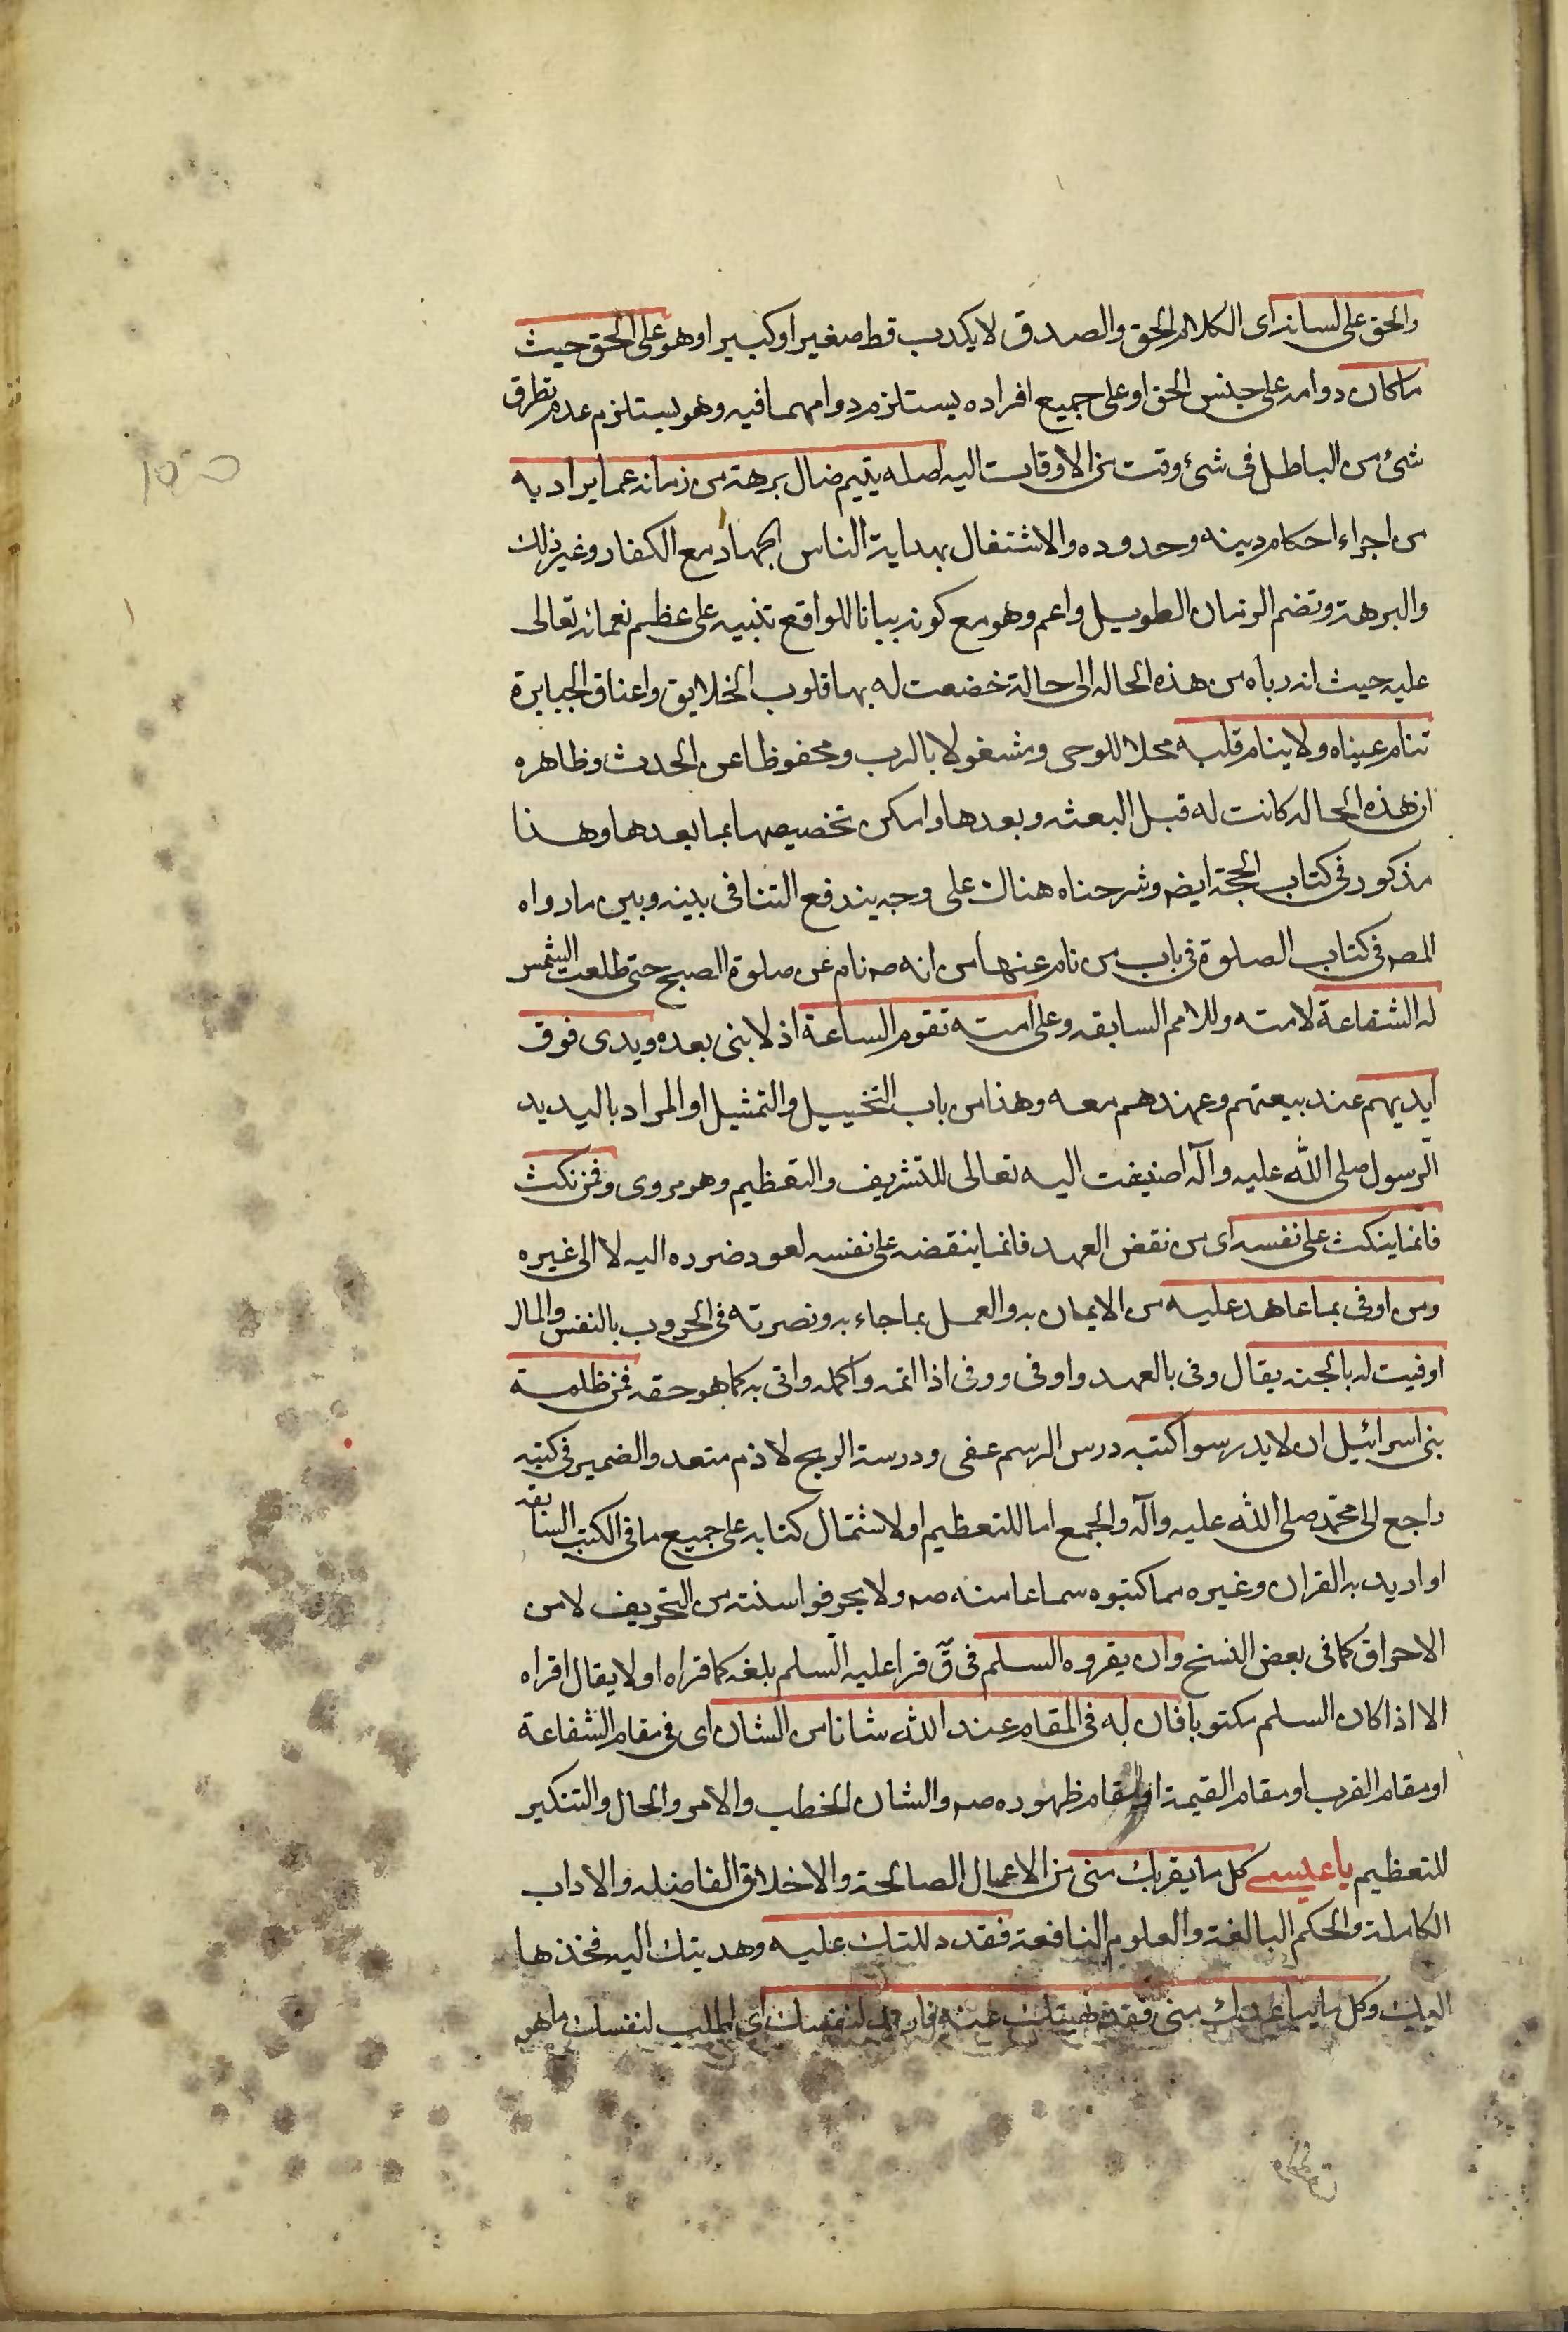 والحق على لسانه اى الكلام الحق والصدق لا يكذب قط صغيرا وكبيرا وهو على الحق حيث
ما كان دوامه على جنس الحق او على جميع افراده يستلزم دوامهما فيه وهو يستلزم عدم تطرق
شئ من الباطل فى شئ وقت من الاوقات اليه اصله يتيم ضال برهة من زمانه عما يراد به
من اجراء احكام دينه وحدوده والاشتغال بهداية الناس الجهاد مع الكفار وغير ذلك
والبرهة وتضم الزمان الطويل واعم وهو مع كونه بيانا للواقع تنبيه على عظيم نعمائه تعالى
عليه حيث انه رباه من هذه الحاله الى حالة خضعت له بها قلوب الخلايق واعناق الجبابرة
تنام عيناه ولا ينام قلبه محلا للوحى ومشغولا بالرب ومحفوظا عن الحدث وظاهره
ان هذه الحاله كانت له قبل البعثه وبعدها وامكن تخصيصها بما بعدها وهذا
مذكور فى كتاب الحجة ايضا وشرحناه هناك على وجه يندفع التنافى بينه وبين ما رواه
المصـ فى كتاب الصلوة فى باب من نام عنها من انه صـ نام عن صلوة الصبح حتى طلعت الشمس
له الشفاعة لامته وللامم السابقه وعلى امته تقوم الساعة اذ لا نبى بعده ويدى فوق
ايديهم عند بيعتهم وعهدهم معه وهذا من باب التخييل والتمثيل او المراد باليد يد
الرسول صلى الله عليه وآله اضيفت اليه تعالى للتشريف والتعظيم وهو مروى وفمن نكث
فانما ينكث على نفسه اى من نقض العهد فانما ينقضه على نفسه لعود ضرره اليه لا الى غيره
ومن اوفى بما عاهد عليه من الايمان به والعمل بما جاء به ونصرته فى الحروب بالنفس والمال
اوفيت له بالجنه يقال وفى بالعهد واوفى ووفى اذا اتمه واكمله واتى به كما هو حقه فمر ظلمة
بنى اسرائيل ان لا يدرسوا كتبه درس الرسم عفى ودرسته الريح لازم متعد والضمير فى كتبه
راجع الى محمد صلى الله عليه وآله والجمع اما للتعظيم او لاشتمال كتابه على جميع ما فى الكتب السابقه
او اريد به القران وغيره مما كتبوه سماعا منه صـ ولا يحرفوا سنته من التحريف لا من
الاحراق كما فى بعض النسخ وان يقروه السلم فى ق قرا عليه السلم بلغه كما قراه او لا يقال اقراه
الا اذا كان السلم مكتوبا فان له فى المقام عند الله شانا من الشان اى فى مقام الشفاعة
او مقام القرب او مقام القيمة او مقام ظهوره صـ والشان الخطب والامر والحال والتنكير
للتعظيم يا عيسى كل ما يقربك منى من الاعمال الصالحة والاخلاق الفاضله والاداب
الكاملة والحكم البالغة والعلوم النافعة فقد دللتك عليه وهديتك اليه فخذها
اليك وكل ما يباعدك منى فقد نهيتك عنه فارتد لنفسك اى اطلب لنفسك ما هو